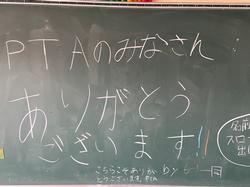 PTAのみなさん
ありがとう
ございます!!
by 6-1一同
こちらこそありが
とうございます。PTA